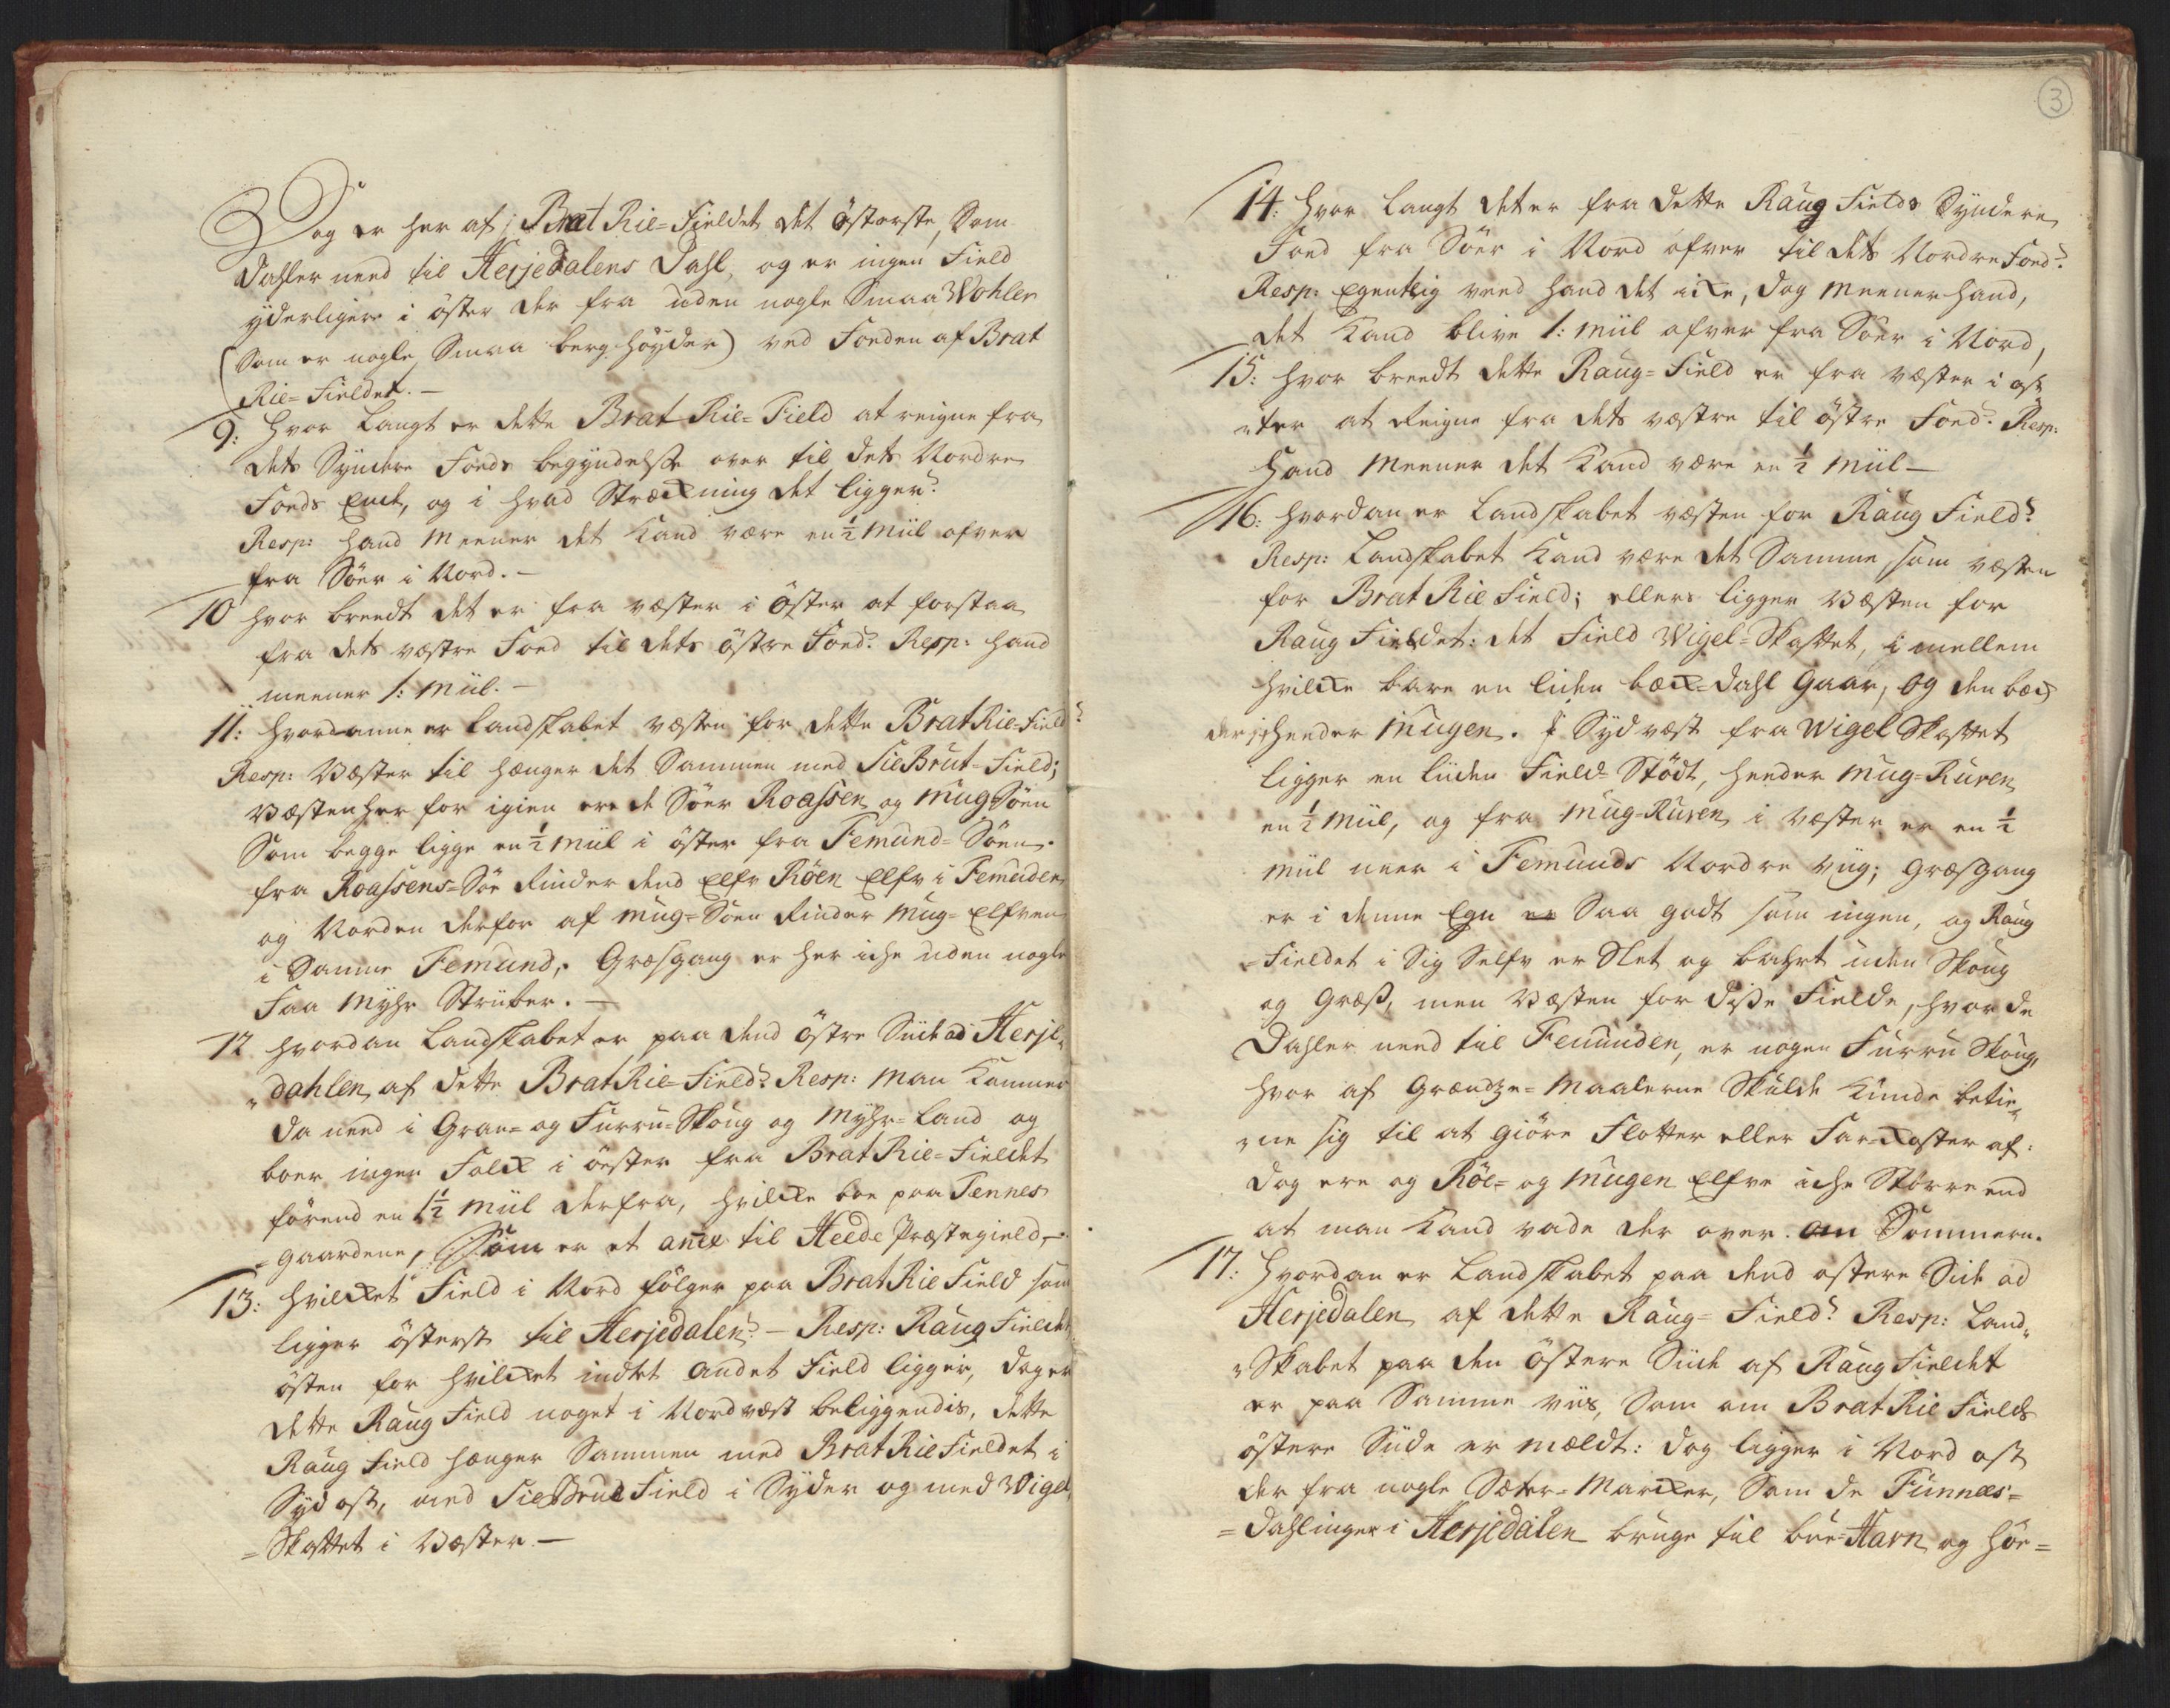 Dog er her af; Brat Rie-Fieldet det österste, Som
Dahler need til Herjedalens Dahl, og er ingen Field
yderligere i öster der fra uden nogle Smaa Wohler
(Som er nogle Smaa berg-höyder) ved Foeden af Brat
Rie-Fieldet.—
9: Hvor Langt er dette Brat-Rie-Field at reigne fra
dets Syndere Foeds begyndelsse over til dets Nordre
Foeds Ende, og i hvad Strækning det ligger?
Resp: Hand Meener det Kand være en ½ Miil ofver
fra Söer i Nord.—
10 Hvor breedt det er fra væster i Öster at forstaa
fra dets væstre Foed til dets östre Foed? Resp: hand
meener 1: Miil.—
11: Hvordanne er landskabet væsten for dette Brat Rie-Field?
Resp: Væster til hænger det Sammen med SieBrut-Field;
Væsten her for igien ere de Söer Roassen og Mug-Söen
Som begge ligge en ½ Miil i öster fra Femund-Söen.
fra Roassens-Söe Rinder dend Elfv Röen Elfv i Femunden
og Norden derfor af Mug-Söen Rinder Mug-Elfven
i Samme Femund, Græsgang er her iche uden nogle
Faa Myhr Strüber.—
12 Hvordan Landskabet er paa dend östre Siide ad Herje-
„dahlen, af dette BratRie-Field? Resp: Man Kommer
da need i Gran- og Furru-Skoug og Myhr-Land og
boer ingen Folck i öester fra BratRie-Fieldet
förend en 1½ Miil derfra, hvilcke boe paa Tennes
-gaardene, Som er et anex til Heede Præstegield,—
13: Hvilcket Field i Nord fölger paa BratRie Field som
ligger österst til Herjedalen?— Resp: Raug Fieldet
östen for hvilcket intet andet Field ligger, dog er
dette Raug Field noget i Nordvæst beliggendis, dette
Raug Field hænger Sammen med BratRie Fieldet i
Sydost, med SieBrud Field i Syder og med Wigel
=Skaftet i Væster.—
3
14: Hvor Langt det er fra dette Raug Fields Syndere
Foed fra Söer i Nord ofver til dets Nordre Foed?
Resp: Egentlig veed hand det icke, dog meener hand,
det Kand blive 1: Miil ofver fra Söer i Nord,
15: Hvor breedt dette Raug-Field er fra væster i ös-
„ter at Reigne fra dets væstre til östre Foed? Resp:
Hand Meener det Kand være en ½ Miil—
16: Hvordan er Landskabet væsten for Raug Field?
Resp: Landskabet Kand være det Samme som væsten
for Brat Rie Field; ellers ligger Væsten for
Raug Fieldet: det Field Wigel-Skaftet, i mellem
hvilcke bare en liden bæck-Dahl gaar, og den bæck
der j heeder Mugen. I Sydvæst fra Wigel Skaftet
ligger en liiden Field Stödt, heeder Mug-Ruven
en ½ Miil, og fra Mug-Ruven i væster er en ½
Miil neer i Femunds Nordre viig; græsgang
er i denne Egn er Saa godt som ingen, og Raug
-Fieldet i Sig Selfv er Slet og bahrt uden Skoug
og Græs, men Væsten for disse Fielde, hvor de
Dahler need til Femunden, er nogen Furru Skoug,
hvor af Grændze-Maalerne Skulde Kunde betie-
„ne sig til at giöre Flotter eller Far-Koster af:
dog ere og Röe- og Mugen Elfve iche Större end
at man Kand vade der over om Sommern.
17: Hvordan er Landskabet paa dend östere Side ad
Herjedalen af dette Raug-Field? Resp: Land-
„Skabet paa den Östere Siide af Raug Fieldet
er paa Samme viis, Som om Brat Rie Fields
östere Siide er mældt: dog ligger i Nord ost
der fra nogle Sæter-Marcker, Som de Funnæs-
=Dahlinger i Herjedalen bruge til bue-Havn og Höe-